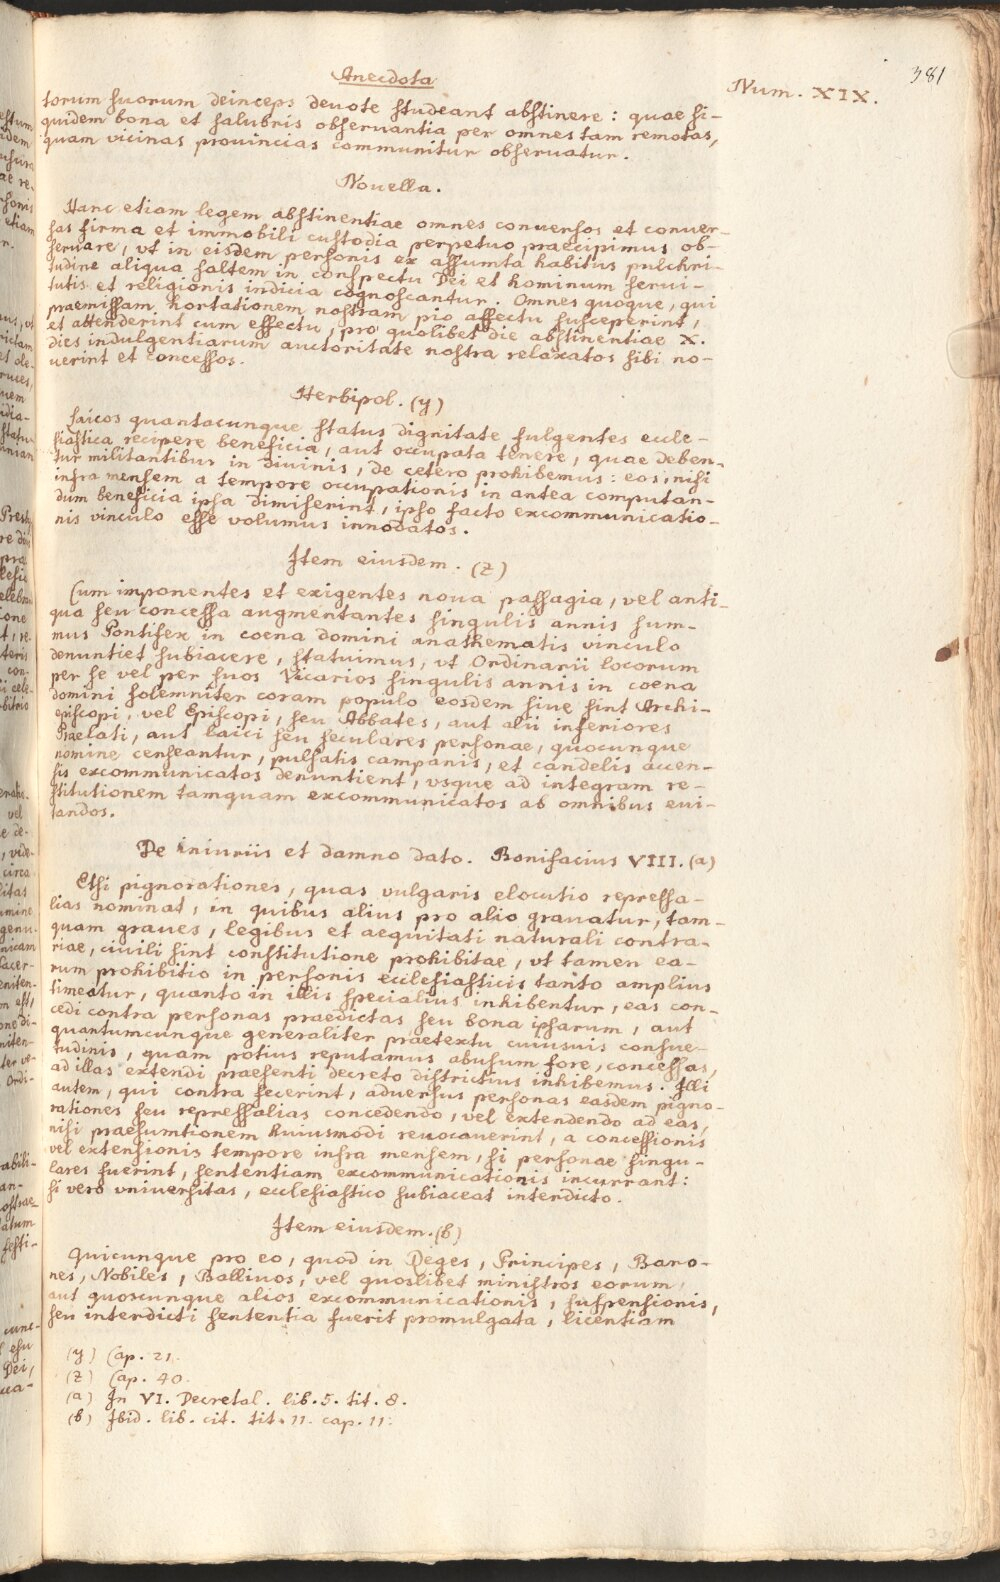 381
Anecdota
Num. XIX.
torum suorum deinceps deuote studeant abstinere: quae si-
quidem bona et salubris obseruantia per omnes tam remotas,
quam vicinas prouincias communitur obseruatur.
Nouella.
Hanc etiam legem abstinentiae omnes conuersos et conuer-
sas firma et immobili custodia perpetuo praecipimus ob-
seruare, vt in eisdem personis ex assumta habitus pulchri-
tudine aliqua saltem in conspectu Dei et hominum serui-
tutis et religionis indicia cognoscantur. Omnes quoque, qui
praemissam hortationem nostram pio affectu susceperint,
et attenderint cum effectu, pro quolibet die abstinentiae X.
dies indulgentiarum auctoritate nostra relaxatos sibi no-
uerint et concessos.
Herbipol. (y)
Laicos quantacunque status dignitate fulgentes eccle-
siastica recipere beneficia, aut occupata tenere, quae deben-
tur militantibus in diuinis, de cetero prohibemus: eos, nisi
infra mensem a tempore occupationis in antea computan-
dum beneficia ipsa dimiserint, ipso facto excommunicatio-
nis vinculo esse volumus innodatos.
Item eiusdem. (z)
Cum imponentes et exigentes noua passagia, vel anti-
qua seu concessa augmentantes singulis annis sum-
mus Pontifex in coena domini anathematis vinculo
denuntiet subiacere, statuimus, vt Ordinarii locorum
per se vel per suos Vicarios singulis annis in coena
domini solemniter coram populo eosdem siue sint Archi-
episcopi, vel Episcopi, seu Abbates, aut alii inferiores
Praelati, aut laici seu seculares personae, quocunque
nomine censeantur, pulsatis campanis, et candelis accen-
sis excommunicatos denuntient, vsque ad integram re-
stitutionem tamquam excommunicatos ab omnibus eui-
tandos.
De iniuriis et damno dato. Bonifacius VIII. (a)
Etsi pignorationes, quas vulgaris elocutio repressa-
lias nominat, in quibus alius pro alio grauatur, tam-
quam graues, legibus et aequitati naturali contra-
riae, ciuili sint constitutione prohibitae, vt tamen ea-
rum prohibitio in personis ecclesiasticis tanto amplius
timeatur, quanto in illis specialius inhibentur, eas con-
cedi contra personas praedictas seu bona ipsarum, aut
quantumcunque generaliter praetextu cuiusuis consue-
tudinis, quam potius reputamus abusum fore, concessas,
ad illas extendi praesenti decreto districtius inhibemus. Illi
autem, qui contra fecerint, aduersus personas easdem pigno-
rationes seu repressalias concedendo, vel extendendo ad eas,
nisi praesumtionem huiusmodi reuocauerint, a concessionis
vel extensionis tempore infra mensem, si personae singu-
lares fuerint, sententiam excommunicationis incurrant:
si vero vniuersitas, ecclesiastico subiaceat interdicto.
Item eiusdem. (b)
Quicunque pro eo, quod in Reges, Principes, Baro-
nes, Nobiles, Balliuos, vel quoslibet ministros eorum,
aut quoscunque alios excommunicationis, suspensionis,
seu interdicti sententia fuerit promulgata, licentiam
(y) Cap. 21.
(z) Cap. 40.
(a) In VI. Decretal. lib. 5. tit. 8.
(b) Ibid. lib. cit. tit. 11. cap. 11.